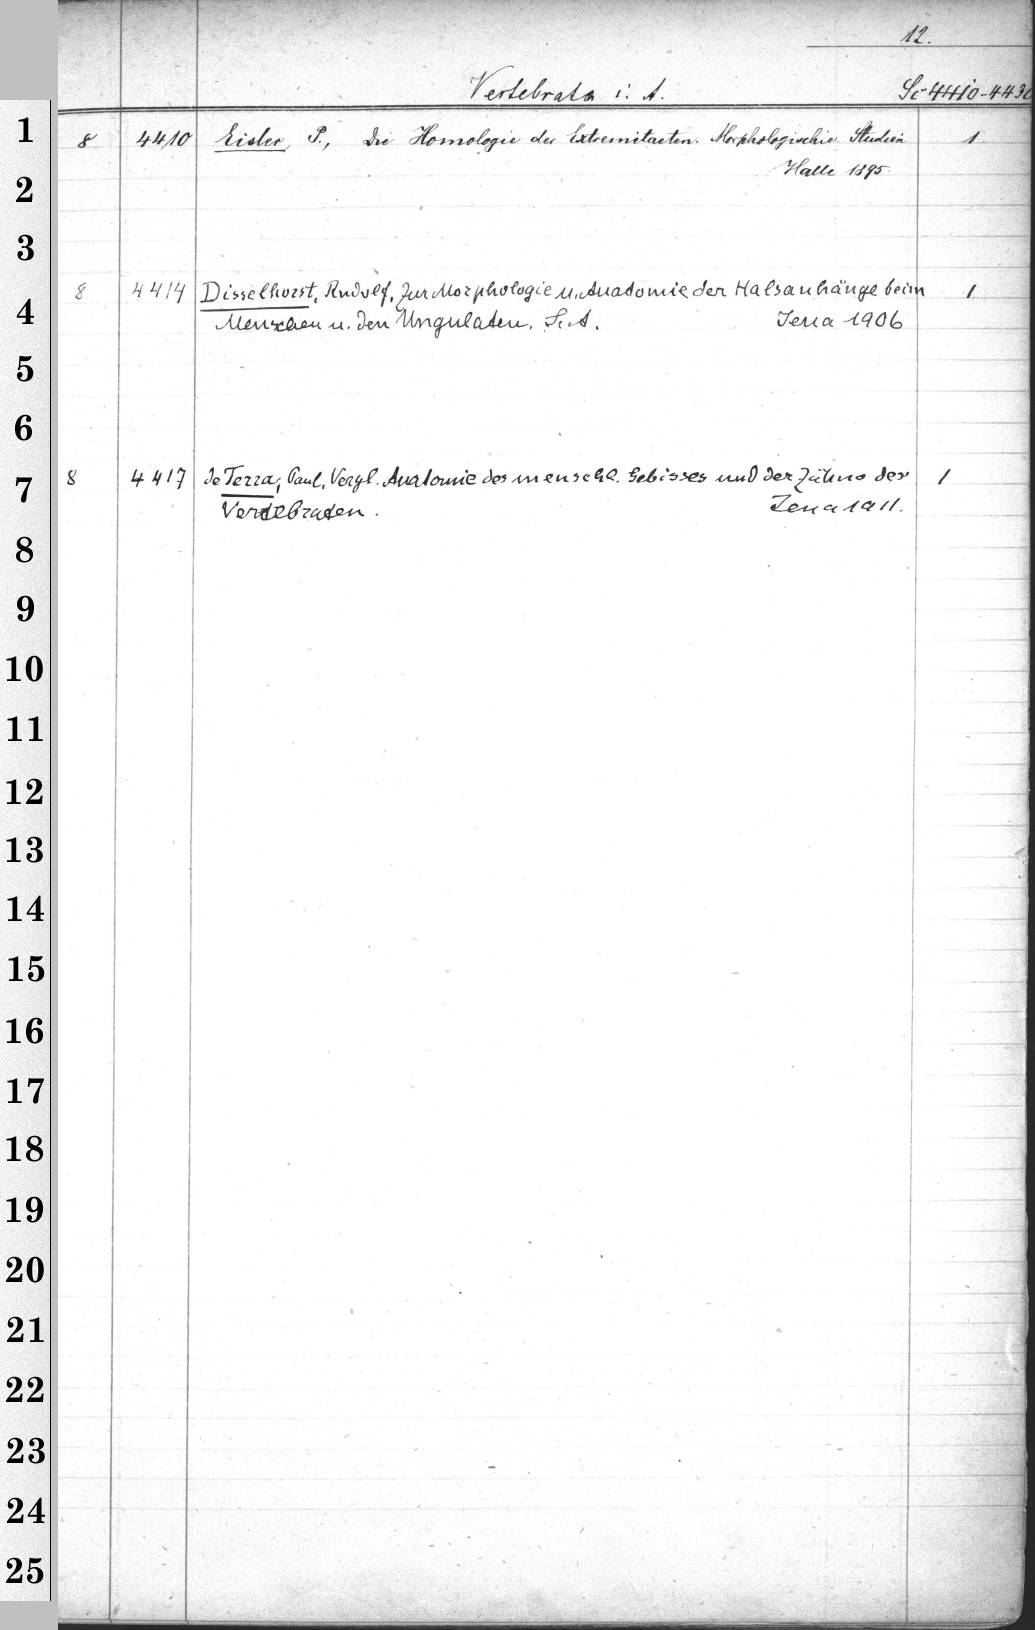 12.
Vertebrata i. A. Sc 4410-4430
1 8 4410 Eisler, P., Die Homologie der Extremitaeten. Morphologische Studien 1
2 Halle 1895.
3
4 8 4414 Disselhorst, Rudolf, Zur Morphologie u. Anatomie der Halsanhänge beim 1
Menschen u. den Ungulaten. S. A. Jena 1906
5
6
7 8 4417 de Terra, Paul, Vergl. Anatomie des menschl. Gebisses und der Zähne der 1
Vertebraten. Jena 1911.
8
9
10
11
12
13
14
15
16
17
18
19
20
21
22
23
24
25